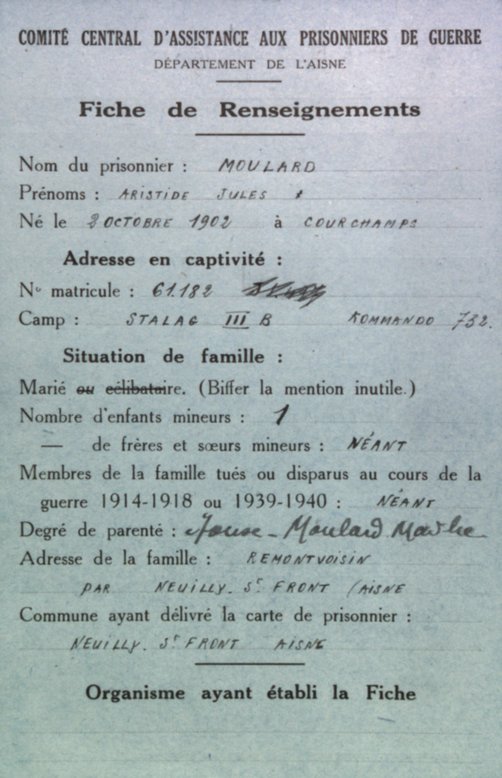 COMITÉ CENTRAL D'ASSISTANCE AUX PRISONNIERS DE GUERRE
DÉPARTEMENT DE L'AISNE
Fiche de Renseignements
Nom du prisonnier : MOULARD
Prénoms : ARISTIDE JULES
Né le 2 OCTOBRE 1902 à COURCHAMPS
Adresse en captivité :
N° matricule : 61.182
Camp : STALAG III B KOMMANDO 732.
Situation de famille :
Marié ou célibataire. (Biffer la mention inutile.)
Nombre d'enfants mineurs : 1
— de frères et sœurs mineurs : NÉANT
Membres de la famille tués ou disparus au cours de la
guerre 1914-1918 ou 1939-1940 : NÉANT
Degré de parenté : Moulard
Adresse de la famille : REMONTVOISIN
PAR NEUILLY. ST FRONT (AISNE
Commune ayant délivré la carte de prisonnier :
NEUILLY. ST FRONT AISNE
Organisme ayant établi la Fiche